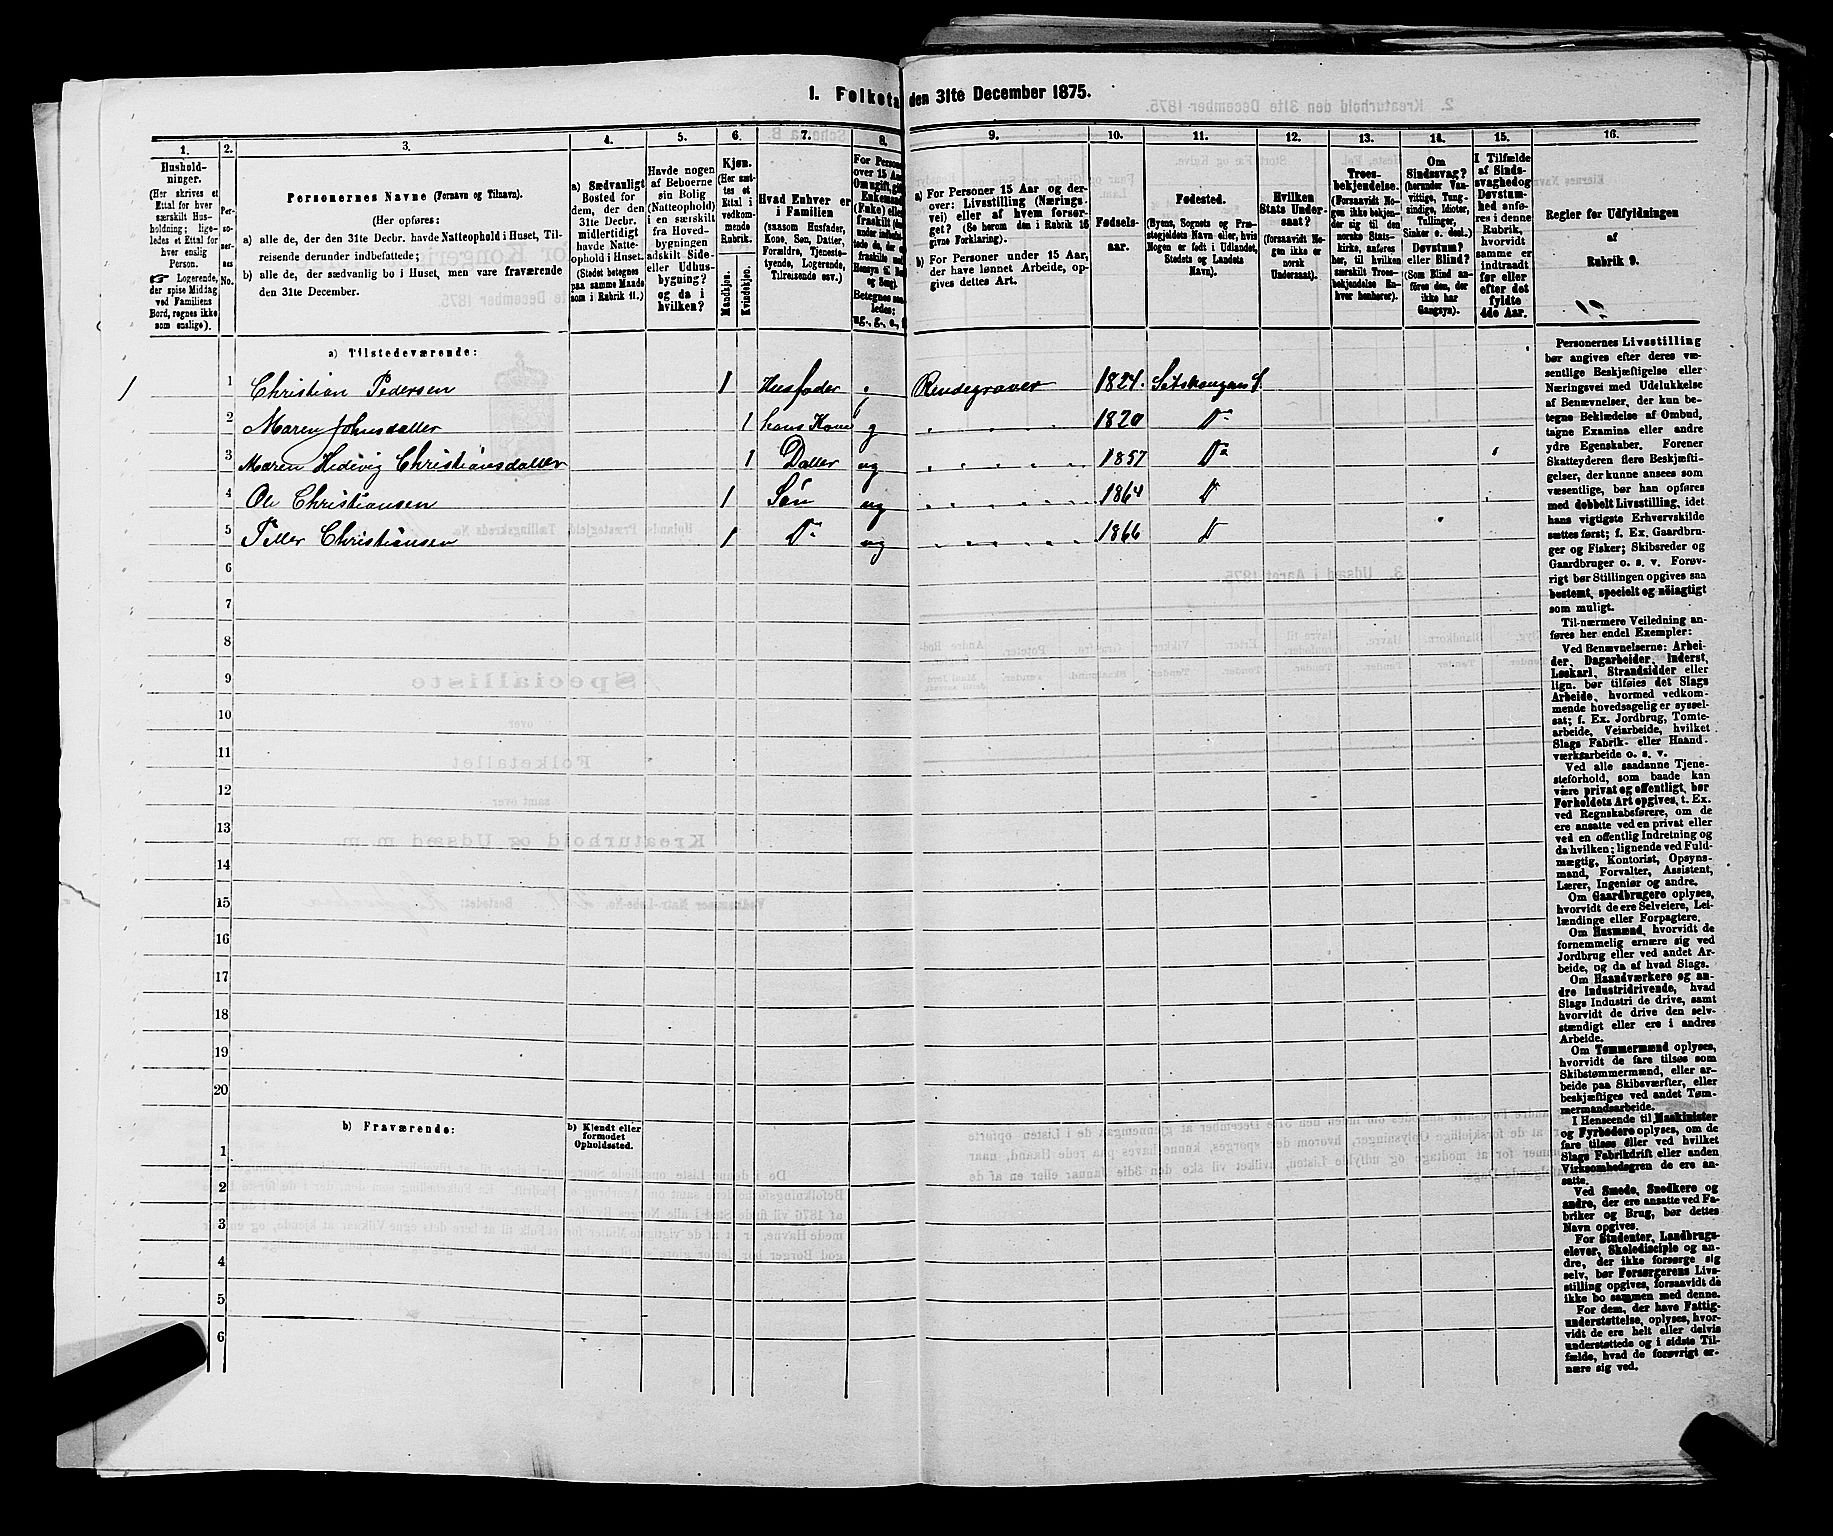 1. Folketa den 31te December 1875.
1. 2. 3. 4. 5. 6. 7. 8. 9. 10. 11. 12. 13. 14. 15. 16.
Hushold-
ninger.
(Her skrives et
Ettal for hver
særskilt Hus-
holdning; lige-
ledes et Ettal for
hver enslig
Person.
☞ Logerende,
der spise Middag
ved Familiens
Bord, regnes ikke
som enslige).
Per-
so-
ner-
nes
No.
Personernes Navne (Fornavn og Tilnavn).
(Her opføres:
a) alle de, der den 31te Decbr. havde Natteophold i Huset, Til-
reisende derunder indbefattede;
b) alle de, der sædvanlig bo i Huset, men vare fraværende
den 31te December.
a) Sædvanligt
Bosted for
dem, der den
31te Decbr.
midlertidigt
havde Natte-
ophold i Huset.
(Stedet betegnes
paa samme Maade
som i Rubrik 11.)
Havde nogen
af Beboerne
sin Bolig
(Natteophold)
i en særskilt
fra Hoved-
bygningen
adskilt Side-
eller Udhus-
bygning?
og da i
hvilken?
Kjøn.
(Her sæt-
tes et
Ettal i
vedkom-
mende
Rubrik.
Mandkjøn.
Kvindekjøn.
Hvad Enhver er
i Familien
(saasom Husfader,
Kone, Søn, Datter,
Forældre, Tjeneste-
tyende, Logerende,
Tilreisende osv.)
For Persone
over 15 Aar
Om ugift, gift
Enkemand
(Enke) eller
fraskilt
Betegnes saa-
ledes:
ug., g., e., f.
a) For Personer 15 Aar og der-
over: Livsstilling (Nærings-
vei) eller af hvem forsør-
get? (Se herom den i Rubrik 16
givne Forklaring).
b) For Personer under 15 Aar,
der have lønnet Arbeide, op-
gives dettes Art.
Fødsels-
aar.
Fødested.
(Byens, Sognets og Præ-
stegjeldets Navn eller, hvis
Nogen er født i Udlandet,
Stedets og Landets
Navn).
Hvilken
Stats Under-
saat?
(forsaavidt No-
gen ikke er
norsk
Undersaat).
Troes-
bekjendelse.
(Forsaavidt No-
gen ikke bekjen-
der sig til den
norske Stats-
kirke, anføres
her, til hvilken
særskilt Troes-
bekjendelse En-
hver henhører).
Om
Sindssvag?
(herunder Van-
vittige, Tung-
sindige, Idioter,
Tullinger,
Sinker o. desl.)
Døvstum?
eller Blind?
(Som Blind an-
føres den, der
ikke har
Gangsyn).
I Tilfælde
af Sinds-
svaghed og
Døvstum-
hed anfø-
res i denne
Rubrik,
hvorvidt
samme er
indtraadt
før eller
efter det
fyldte
4de Aar.
Regler før Udfyldningen
af
Rubrik 9.
a) Tilstedeværende:
1 1 Christian Pedersen 1 Husfader g Rendegraver 1824. Sætskougens S.
2 Maren Johnsdatter 1 hans Kone g " 1820 Do
3 Maren Hedevig Christiansdatter 1 Datter ug " " " " 1857 Do
4 Ole Christiansen 1 Søn ug " " " " 1864 D
5 Petter Christiansen 1 Do ug " " " " 1866 D
6
7
8
9
10
11
12
13
14
15
16
17
18
19
20
b) Fraværende:
b) Kjendt eller
formodet
Opholdssted.
1
2
3
4
5
6
Personernes Livsstilling
bør angives efter deres væ-
sentlige Beskjæftigelse eller
Næringsvei med Udelukkelse
af Benævnelser, der kun be-
tegne Beklædelse af Ombud,
tagne Examina eller andre
ydre Egenskaber. Forener
Skatteyderen flere Beskjæfti-
gelser, der kunne ansees som
væsentlige, bør han opføres
med dobbelt Livsstilling, idet
hans vigtigste Erhvervskilde
sættes først; f. Ex. Gaardbru-
ger og Fisker; Skibsreder og
Gaardbruger o. s. v. Forøv-
rigt bør Stillingen opgives saa
bestemt, specielt og nøiagtigt
som muligt.
Til nærmere Veiledning an-
føres her endel Exempler:
Ved Benævnelserne: Arbei-
der, Dagarbeider, Inderst,
Løskarl, Strandsidder eller
lign. bør tilføies det Slags
Arbeide, hvormed vedkom-
mende hovedsagelig er syssel-
sat; f. Ex. Jordbrug, Tomte-
arbeide, Veiarbeide, hvilket
Slags Fabrik- eller Haand-
værksarbeide o. s. v.
Ved alle saadanne Tjene-
steforhold, som baade kan
være privat og offentligt, bør
Forholdets Art opgives, t. Ex.
ved Regnskabsførere, om de
ere ansatte ved en privat eller
ved en offentlig Indretning og
da hvilken; lignende ved Fuld-
mægtig, Kontorist, Opsyns-
mand, Forvalter, Assistent,
Lærer, Ingeniør og andre.
Om Gaardbrugere oplyses,
hvorvidt de ere Selveiere, Lei-
lændinge eller Forpagtere.
Om Husmænd, hvorvidt de
fornemmelig ernære sig ved
Jordbrug eller ved andet Ar-
beide, og da af hvad Slags.
Om Haandværkere og an-
dre Industridrivende, hvad
Slags Industri de drive, samt
hvorvidt de drive den selv-
stændigt eller ere i andres
Arbeide.
Om Tømmermænd oplyses,
hvorvidt de fare tilsøs som
Skibstømmermænd, eller ar-
beide paa Skibsværfter, eller
beskjæftiges ved andet Tøm-
mermandsarbeide.
I Henseende til Maskinister
og Fyrbødere oplyses, om de
fare tilsøs eller ved hvilket
Slags Fabrikdrift eller anden
Virksomhedsgren de ere an-
satte.
Ved Smede, Snedkere og
andre, der ere ansatte ved Fa-
briker og Brug, bør dettes
Navn opgives.
For Studenter, Landbrugs-
elever, Skoledisciple og an-
dre, der ikke forsørge sig
selv, bør Forsørgerens Livs-
stilling opgives, forsaavidt de
ikke bo sammen med denne.
For dem, der have Fattig-
understøttelse, oplyses, hvor-
vidt de ere helt eller delvis
understøttede og i sidste Til-
fælde, hvad de forøvrigt er-
nære sig ved.